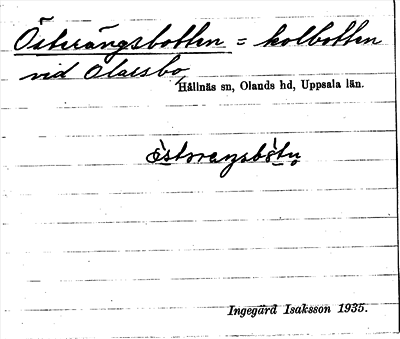 Österängsbotten = kolbotten
vid Olarsbo,
Hållnäs sn, Olands hd, Uppsala län.
Ingegärd Isaksson 1935.